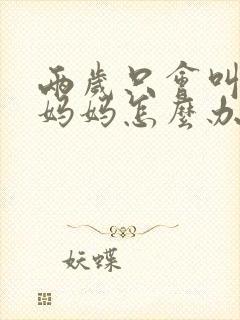 兩歲只會叫
媽媽怎麼办
妖蝶